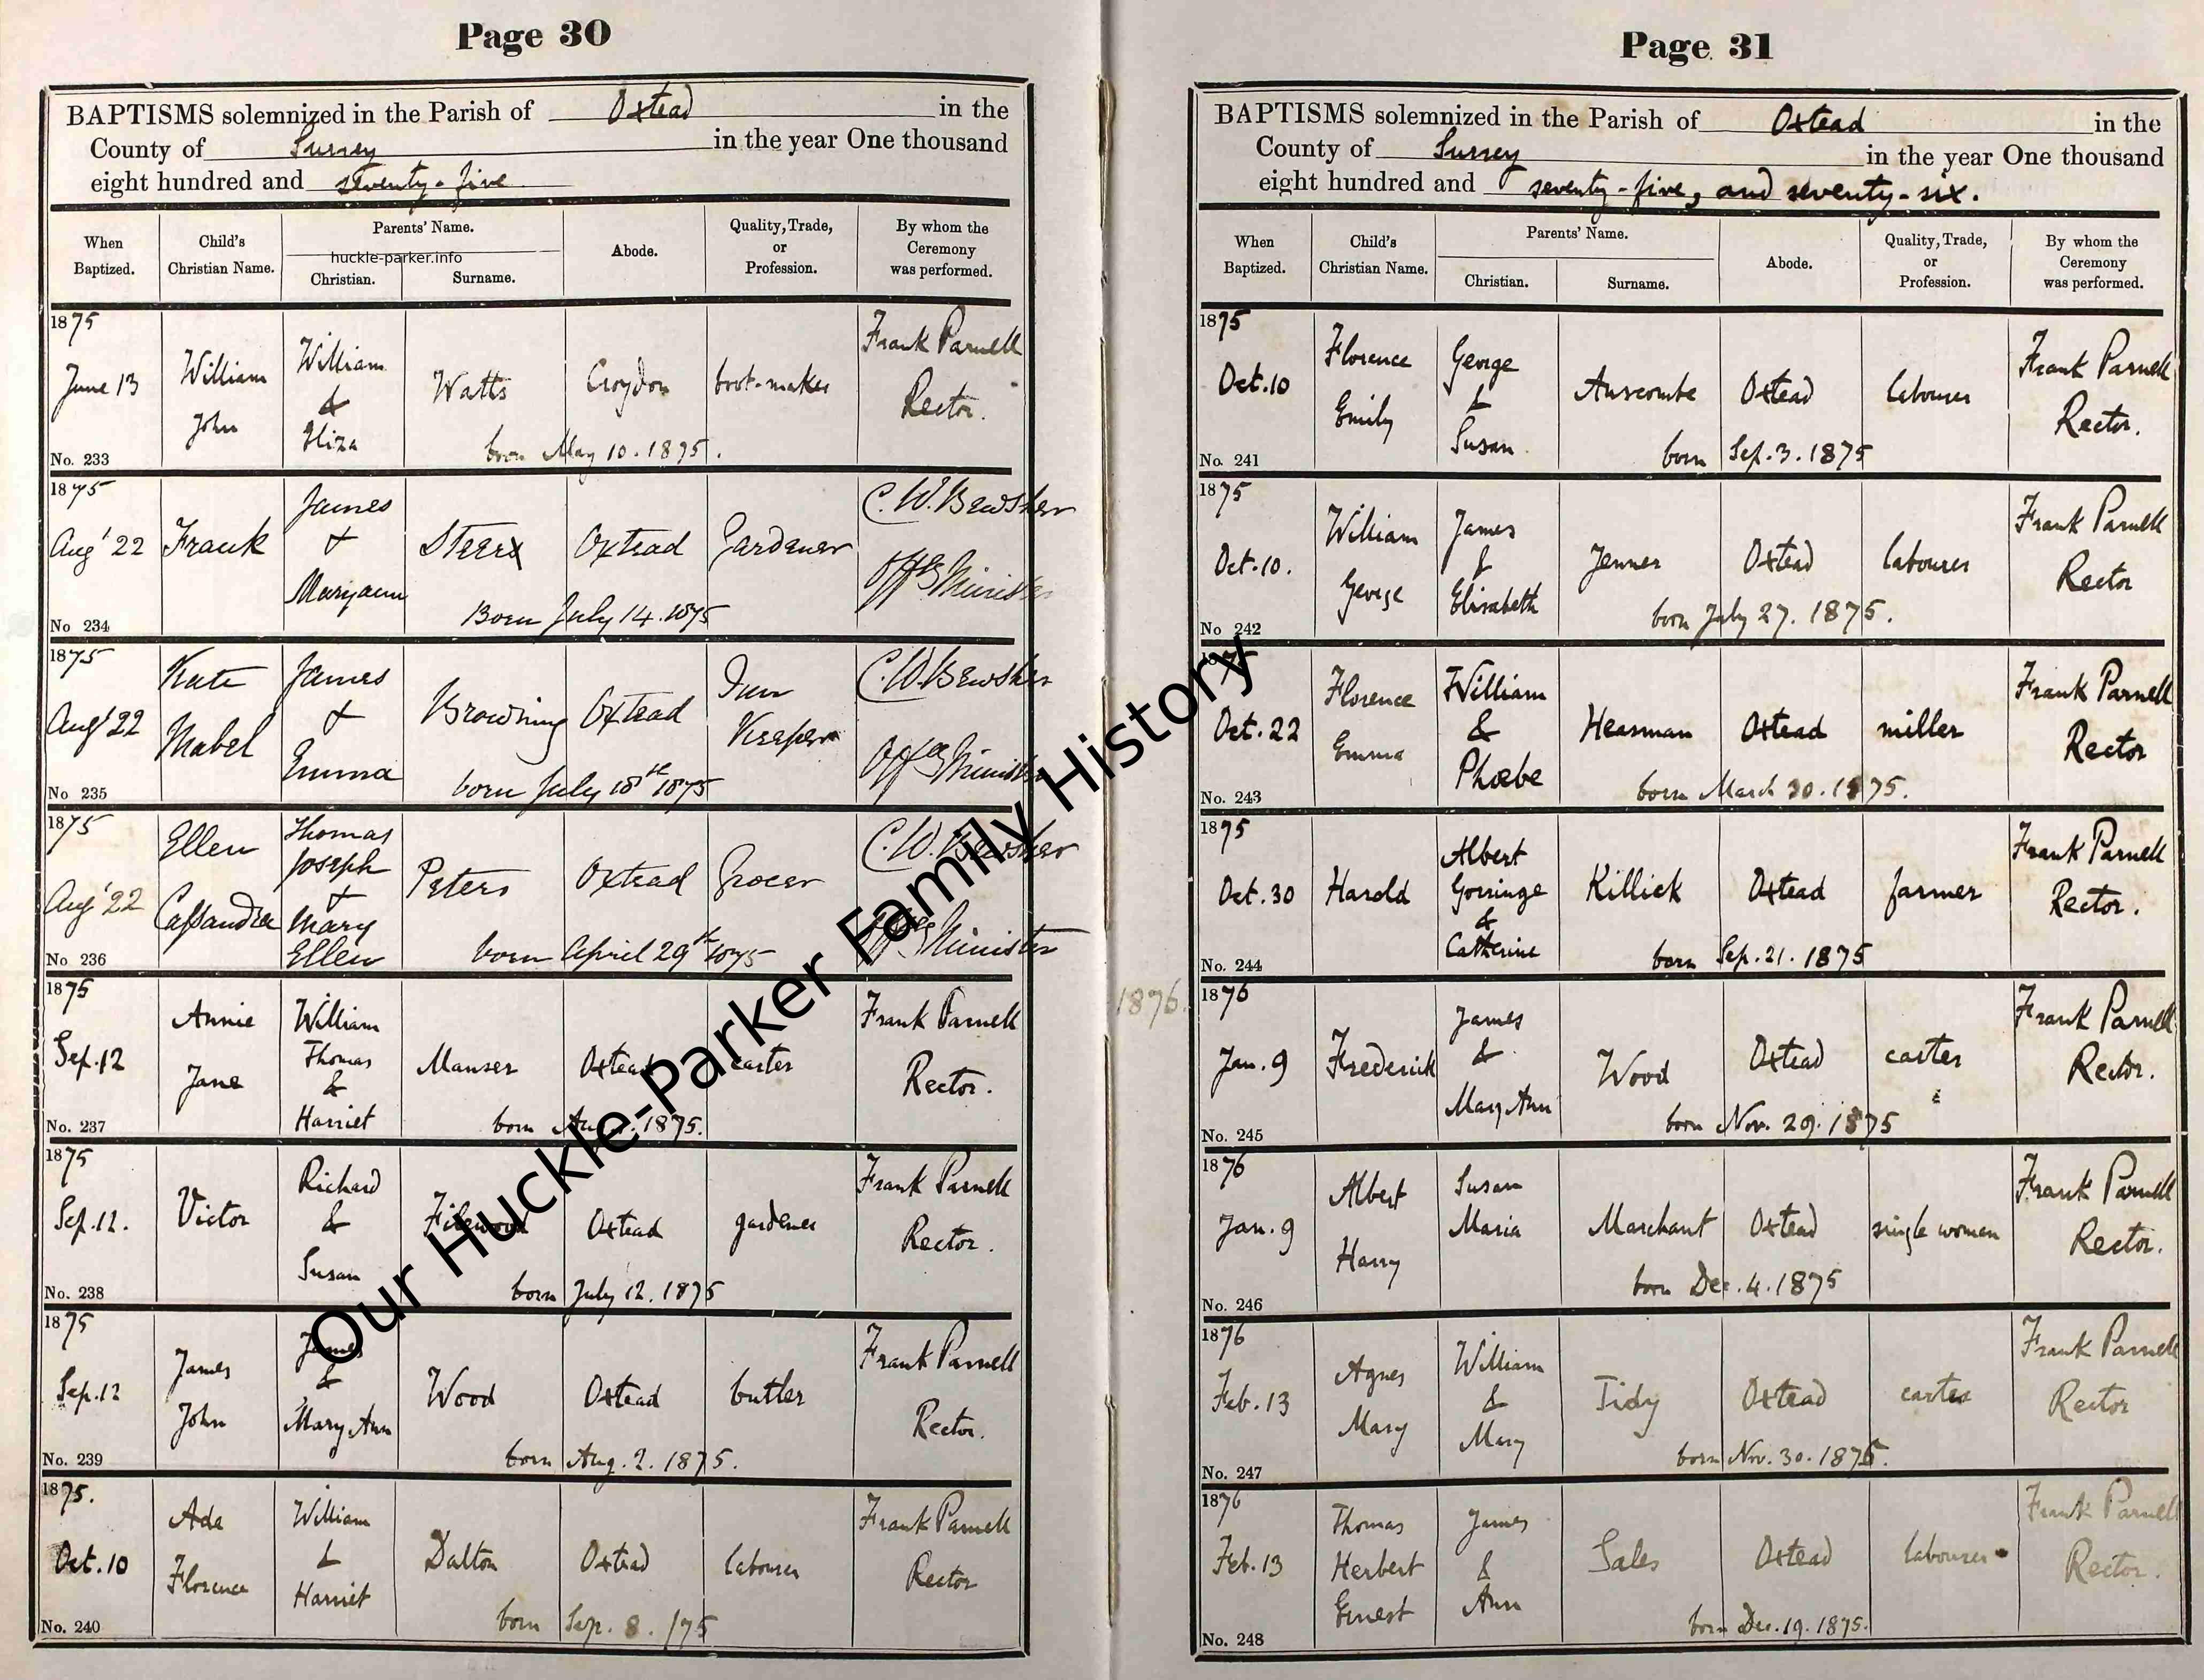 Page 30
BAPTISMS solemnized in the Parish of Oxtead in the
County of Surrey in the year One thousand
eight hundred and seventy-five
When Baptized. Child's Christian Name. Parents' Name. Christian. Surname. Abode. Quality, Trade, or Profession. By whom the Ceremony was performed.
huckle-parker.info
1875 June 13 William John William & Eliza Watts Croydon boot-maker Frank Parnell Rector.
born May 10. 1875.
No. 233
1875 Aug' 22 Frank James + Maryann Oxtead Gardener C. W. Bewsher Minister
Born July 14. 1875
No 234
1875 Aug' 22 Kate Mabel James + Emma Browning Oxtead Inn Keeper C. W. Bewsher Minister
born July 18th 1875
No 235
1875 Aug' 22 Ellen Cassandra Thomas Joseph + Mary Ellen Peters Oxtead Grocer C. W. Bewsher Minister
born April 29th 1875
No 236
1875 Sep. 12 Annie Jane William Thomas & Harriet Manser Oxtead carter Frank Parnell Rector.
born 1875.
No. 237
1875 Sep. 12. Victor Richard & Susan Filewood Oxtead gardener Frank Parnell Rector.
born July 12. 1875
No. 238
1875 Sep. 12 James John James & Mary Ann Wood Oxtead butler Frank Parnell Rector.
born Aug. 2. 1875.
No. 239
1875. Oct. 10 Ada Florence William & Harriet Dalton Oxtead labourer Frank Parnell Rector
born Sep. 8. /75
No. 240
Page 31
BAPTISMS solemnized in the Parish of Oxtead in the
County of Surrey in the year One thousand
eight hundred and seventy-five, and seventy-six.
When Baptized. Child's Christian Name. Parents' Name. Christian. Surname. Abode. Quality, Trade, or Profession. By whom the Ceremony was performed.
1875 Oct. 10 Florence Emily George & Susan Anscombe Oxtead labourer Frank Parnell Rector.
born Sep. 3. 1875
No. 241
1875 Oct. 10. William George James & Elisabeth Jenner Oxtead labourer Frank Parnell Rector
born July 27. 1875.
No 242
1875 Oct. 22 Florence Emma William & Phœbe Heasman Oxtead miller Frank Parnell Rector
born March 30. 1875.
No. 243
1875 Oct. 30 Harold Albert Gorringe & Catherine Killick Oxtead farmer Frank Parnell Rector.
born Sep. 21. 1875
No. 244
1876.
1876 Jan. 9 Frederick James & Mary Ann Wood Oxtead carter Frank Parnell Rector.
born Nov. 29. 1875
No. 245
1876 Jan. 9 Albert Harry Susan Maria Marchant Oxtead single woman Frank Parnell Rector.
born Dec. 4. 1875
No. 246
1876 Feb. 13 Agnes Mary William & Mary Tidy Oxtead carter Frank Parnell Rector
born Nov. 30. 1875.
No. 247
1876 Feb. 13 Thomas Herbert Ernest James & Ann Sales Oxtead labourer Frank Parnell Rector.
born Dec. 19. 1875.
No. 248
Our Huckle-Parker Family History